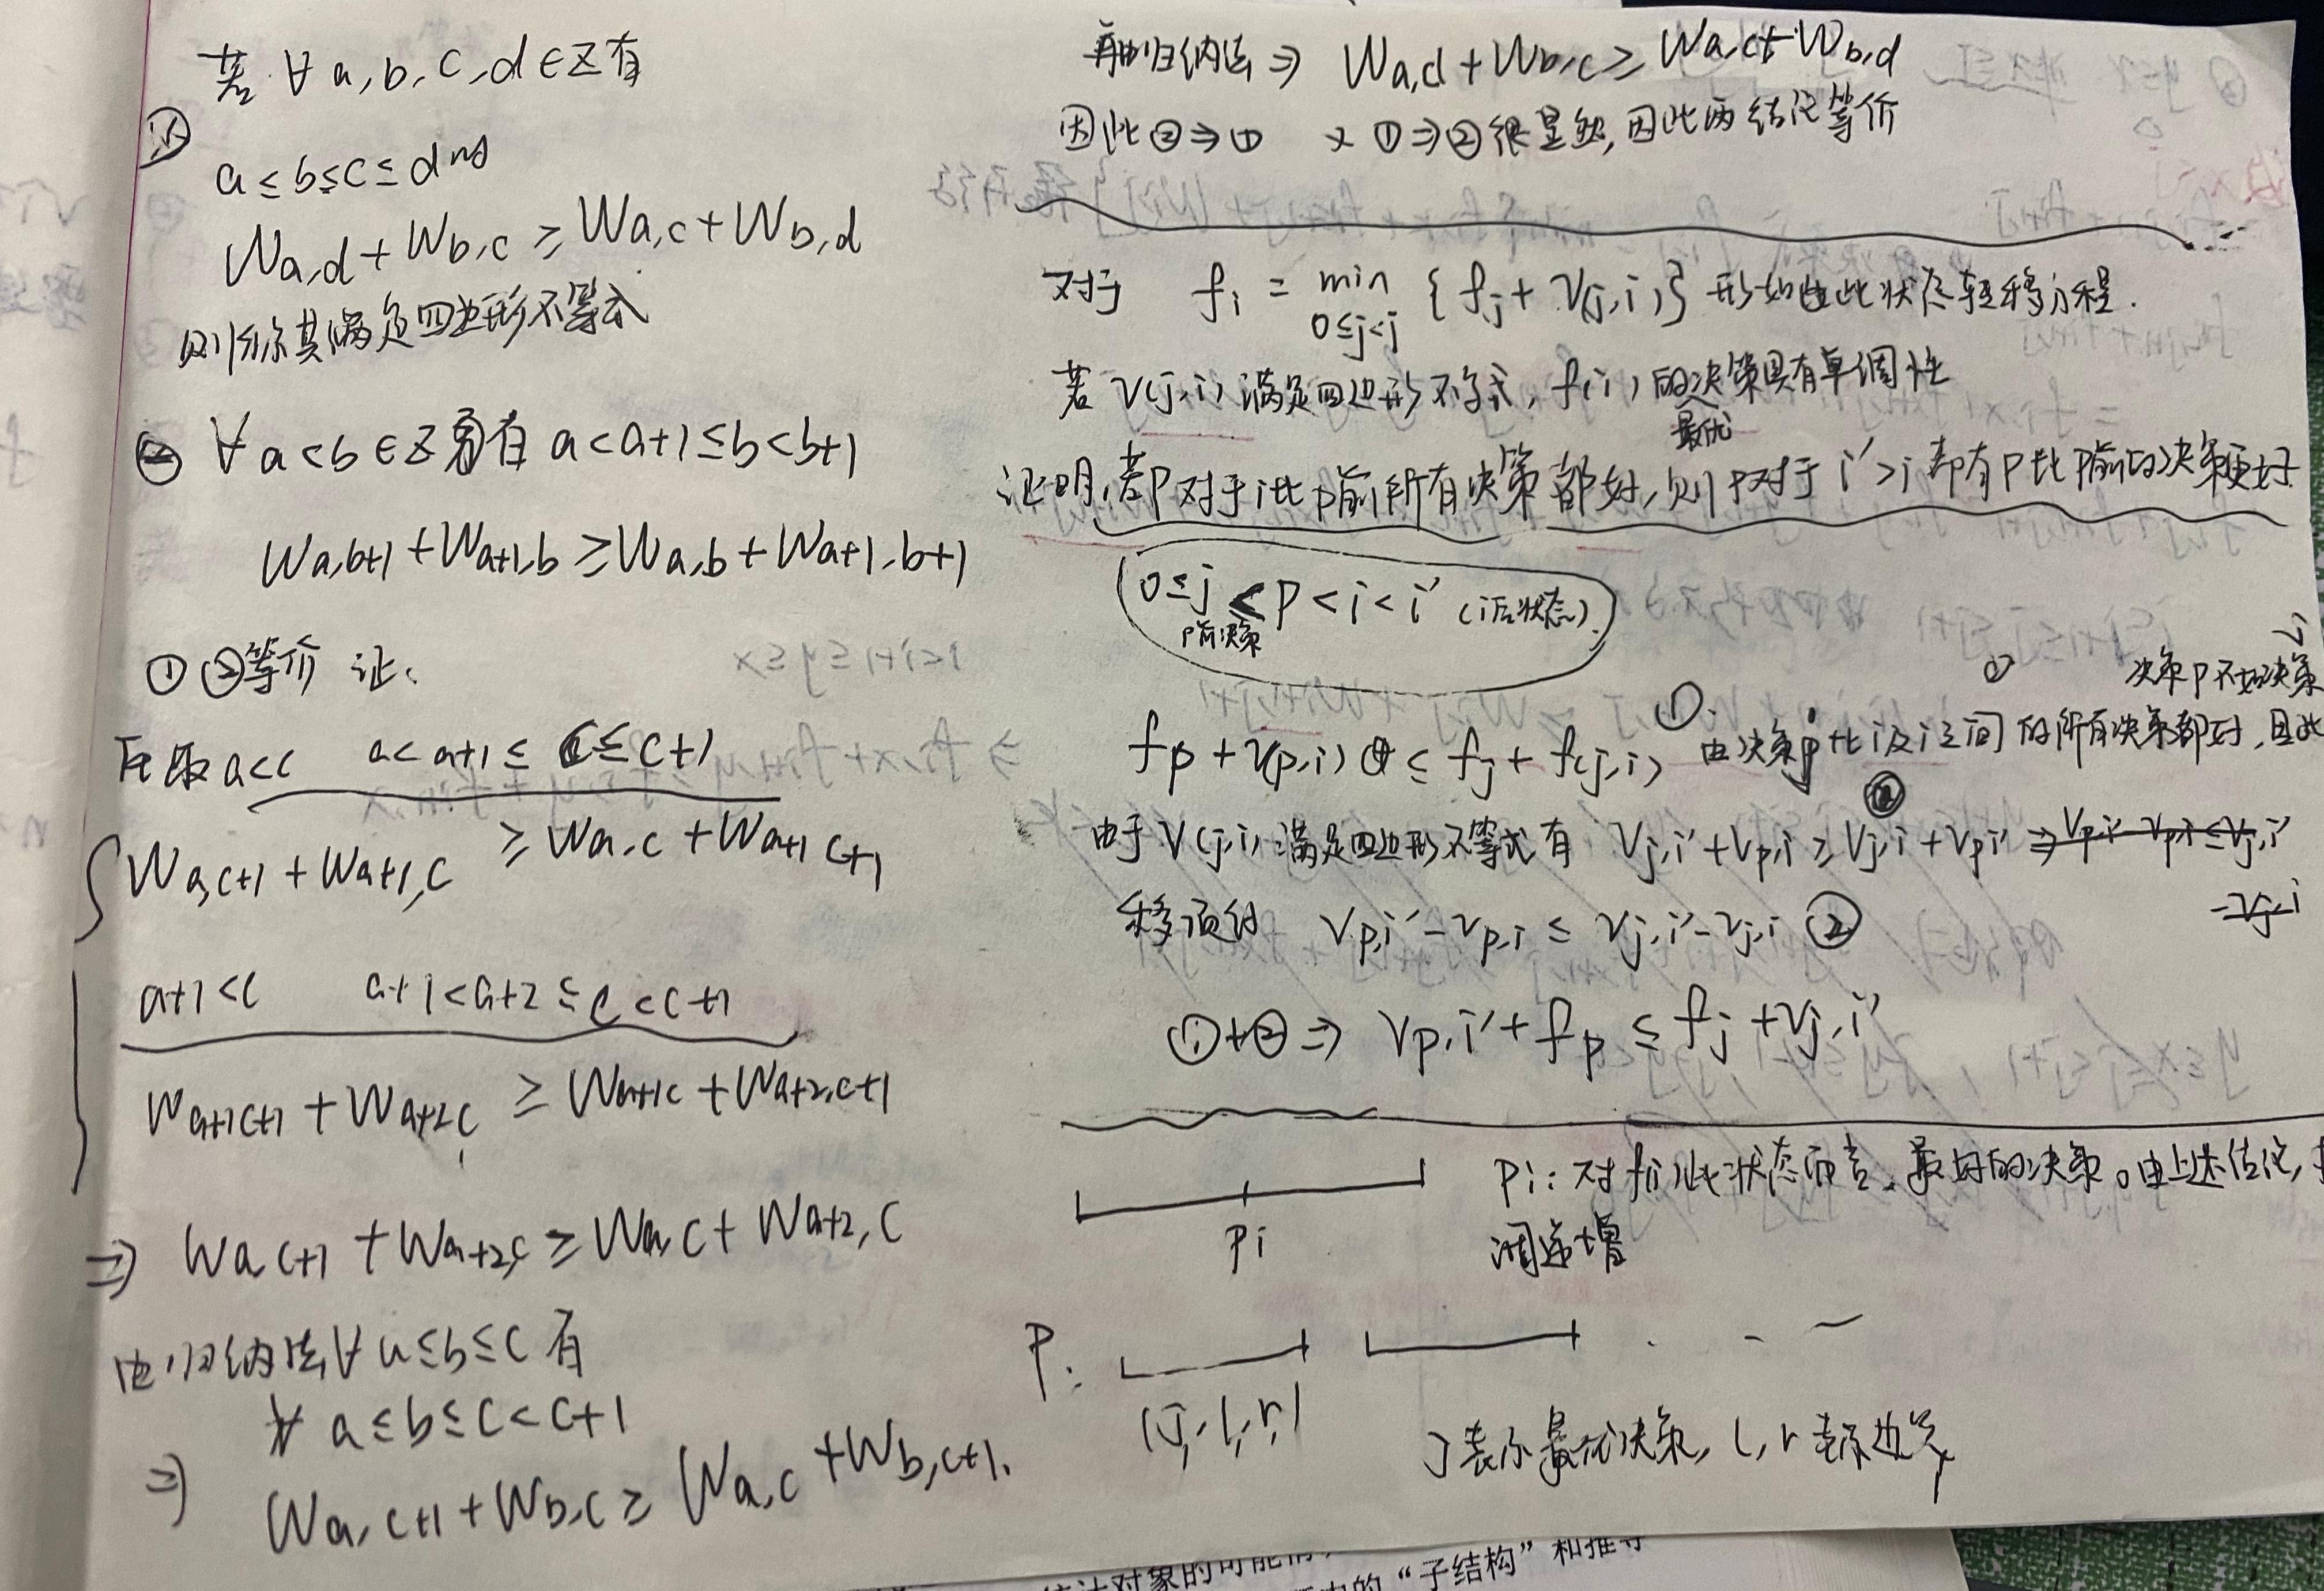 若 ∀ a, b, c, d ∈ Z 有
①
a ≤ b ≤ c ≤ d 时
Wa,d + Wb,c ≥ Wa,c + Wb,d
则称其满足四边形不等式
② ∀ a < b ∈ Z 有 a < a+1 ≤ b < b+1
Wa,b+1 + Wa+1,b ≥ Wa,b + Wa+1,b+1
① ②等价 证:
取 a<c a < a+1 ≤ c ≤ c+1
Wa,c+1 + Wa+1,c ≥ Wa,c + Wa+1 c+1
a+1 < c a+1 < a+2 ≤ c < c+1
Wa+1 c+1 + Wa+2 c ≥ Wa+1 c + Wa+2,c+1
⇒ Wa,c+1 + Wa+2,c ≥ Wa,c + Wa+2,c
由归纳法 ∀ a ≤ b ≤ c 有
∀ a ≤ b ≤ c < c+1
⇒ Wa,c+1 + Wb,c ≥ Wa,c + Wb,c+1.
再由归纳法 ⇒ Wa,d + Wb,c ≥ Wa,c + Wb,d
因此 ② ⇒ ① 又 ① ⇒ ② 很显然, 因此两结论等价
对于 fi = min { fj + V(j,i) } 形如此状态转移方程.
0≤j<j
若 V(j,i) 满足四边形不等式, f(i) 的决策具有单调性
最优
证明: 若P对于i比p前所有决策都好, 则P对于 i′ > i 都有P比P前的决策更好
0 ≤ j < P < i < i′ (i后状态)
p前决策
决策P不如决策
fp + V(p,i) ≤ fj + f(j,i) ① 由决策 的所有决策都好, 且此
由于V(j,i)满足四边形不等式有 Vj,i′ + Vp,i ≥ Vj,i + Vp,i′ ⇒ Vp,i′ - Vp,i ≤ Vj,i′
- Vj,i
移项得 Vp,i′ - Vp,i ≤ Vj,i′ - Vj,i ②
① + ② ⇒ Vp,i′ + fp ≤ fj + Vj,i′
Pi: 对f(i)此状态而言, 最好的决策。由上述结论,
Pi 调递增
P:
(j, l, r)
j表示最优决策, l, r 表示边界
统计对象的可能情
中的 “子结构” 和推导